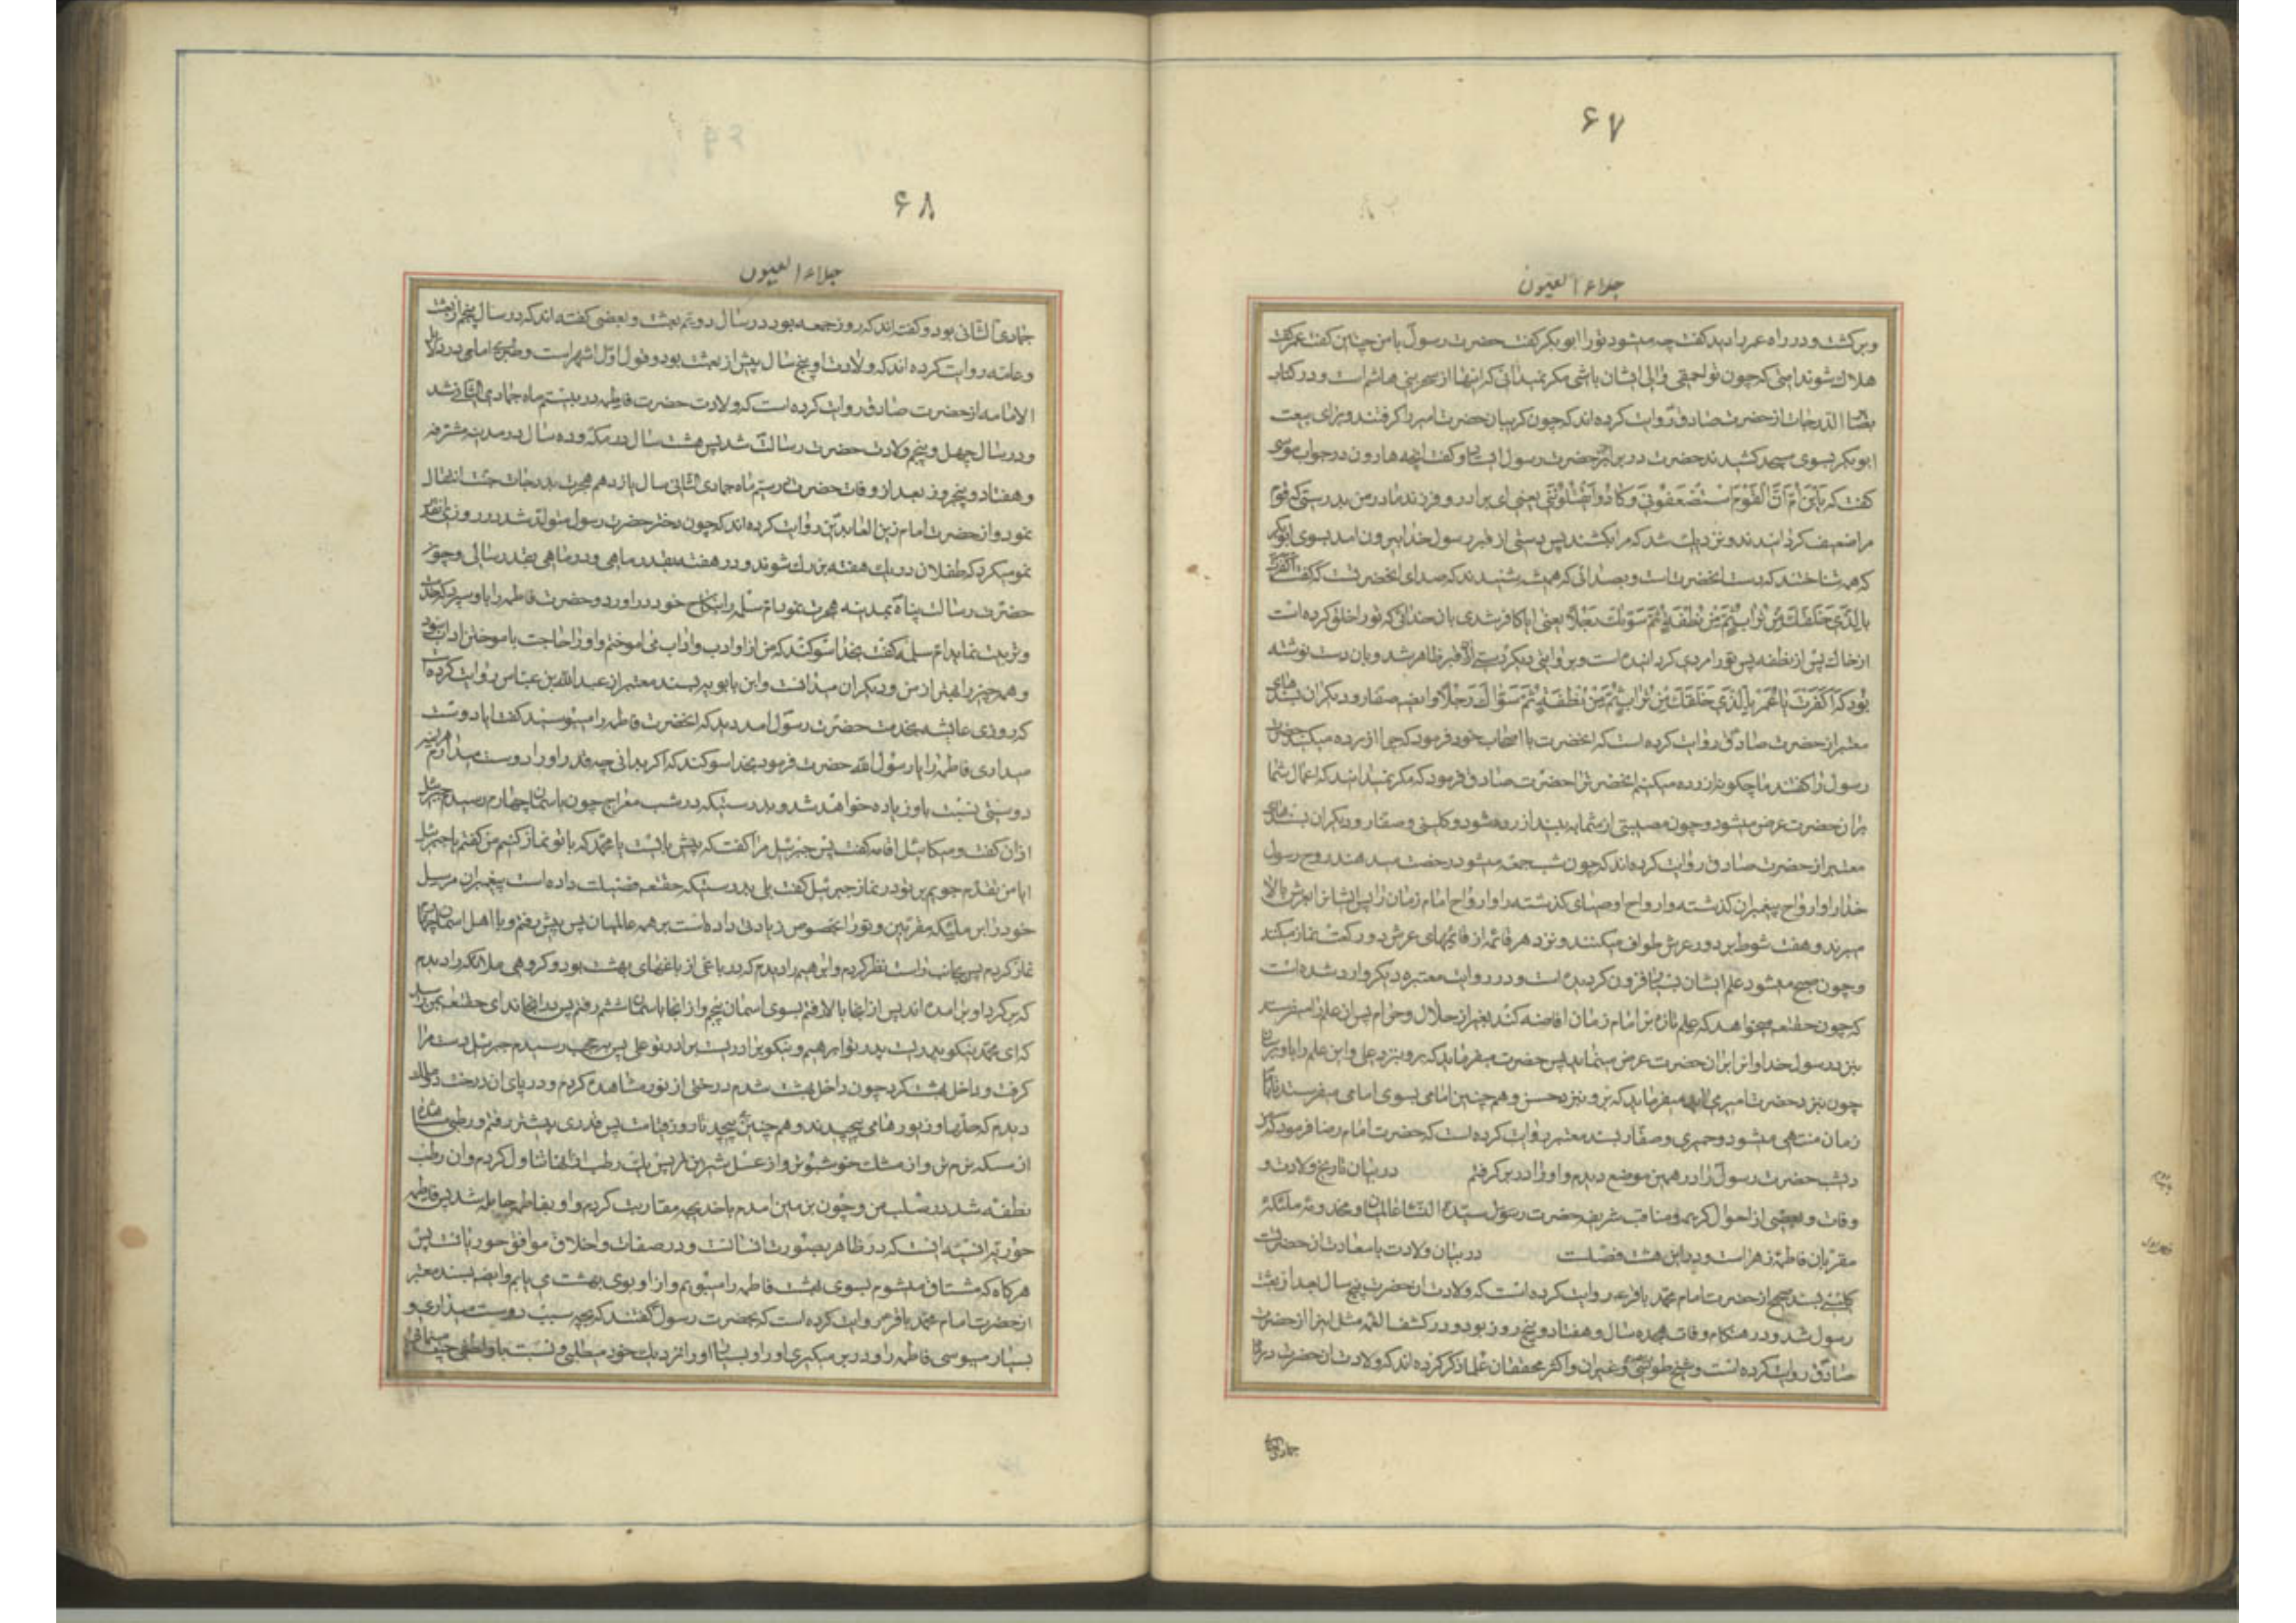 ۶۷
جلاء العیون
و برکشت و در راه عمر را دید کفت چه میشود تو را ابوبکر کفت حضرت رسول با من چنین کفت عمر کفت
هلاک شوند امتی که چون تو احمقی والی ایشان باشی مکر نمیدانی که اینها از سحر بنی هاشم است و در کتاب
بصائر الدرجات از حضرت صادق روایت کرده اند که چون کریبان حضرت امیر را کرفتند و برای بیعت
ابوبکر بسوی مسجد کشیدند حضرت در برابر قبر حضرت رسول ایستاد و کفت آنچه هارون در جواب موسی
کفت که یَابْنَ اُمَّ اِنَّ الْقَوْمَ اسْتَضْعَفُونِی وَکَادُوا یَقْتُلُونَنِی یعنی ای برادر و فرزند مادر من بدرستی که قوم
مرا ضعیف کردانیدند و نزدیک شد که مرا بکشند پس دستی از قبر رسول خدا بیرون امد بسوی ابوبکر
که همه شناختند که دست انحضرت است و بصدائی که همه شنیدند که صدای انحضرت است که کفت اَکَفَرْتَ
بِالَّذِی خَلَقَکَ مِنْ تُرَابٍ ثُمَّ مِنْ نُطْفَةٍ ثُمَّ سَوّٰیکَ رَجُلًا یعنی ایا کافر شدی بان خدائی که تو را خلق کرده است
از خاک پس از نطفه پس تو را مردی کردانیده است و بروایتی دیکر دستی از قبر ظاهر شد و بان دست نوشته
بود که اَکَفَرْتَ یَا عُمَرُ بِالَّذِی خَلَقَکَ مِنْ تُرَابٍ ثُمَّ مِنْ نُطْفَةٍ ثُمَّ سَوّٰاکَ رَجُلًا و ایضا صفار و دیکران بسندهای
معتبر از حضرت صادق روایت کرده است که انحضرت با اصحاب خود فرمود که چرا ازرده میکنید حضرت
رسول را کفتند ما چکونه ازرده میکنیم انحضرت را حضرت صادق فرمود که مکر نمیدانید که اعمال شما
بر ان حضرت عرض میشود و چون معصیتی از شما به بیند ازرده میشود و کلینی و صفار و دیکران بسندهای
معتبر از حضرت صادق روایت کرده اند که چون شب جمعه میشود رخصت میدهند روح رسول
خدا را و ارواح پیغمبران کذشته و ارواح اوصیای کذشته را و ارواح امام زمان را پس ایشانرا بعرش بالا
میبرند و هفت شوط بر دور عرش طواف میکنند و نزد هر قائمه از قائمهای عرش دو رکعت نماز میکنند
و چون صبح میشود علم ایشان بسیار افزون کردیده است و در روایت معتبره دیکر وارد شده است
که چون حقتعالی میخواهد که علم تازه بر امام زمان افاضه کند بغیر از حلال و حرام پس ان علم را میفرستد
بنزد رسول خدا و انرا بران حضرت عرض مینماید پس حضرت میفرماید که برو بنزد علی و این علم را باو برسان
چون بنزد حضرت امیر می اید میفرماید که برو بنزد حسن و همچنین امامی بسوی امامی میفرستد تا بامام
زمان منتهی میشود و حمیری و صفار بسند معتبر روایت کرده است که حضرت امام رضا فرمود که
دیشب حضرت رسول را در همین موضع دیدم و او را در بر کرفتم در بیان تاریخ ولادت و
وفات و بعضی از احوال کریمه و مناقب شریفه حضرت رسول سیدة النساء عالمیان و مخدومه ملئکه
مقربان فاطمه زهرا است و در این هشت فصلست در بیان ولادت باسعادت ان حضرت
کلینی بسند صحیح از حضرت امام محمد باقر ع روایت کرده است که ولادت ان حضرت پنج سال بعد از بعثت
رسول شد و در هنکام وفات هجده سال و هفتاد و پنج روز بود و در کشف الغمه مثل اینرا از حضرت
صادق روایت کرده است و شیخ طوسی و غیر ان و اکثر محققان علما ذکر کرده اند که ولادت ان حضرت در
جمادی
۶۸
جلاء العیون
جمادی الثانی بود و کفته اند که روز جمعه بود در سال دویم بعثت و بعضی کفته اند که در سال پنجم از بعثت
و عامه روایت کرده اند که ولادت او پنج سال پیش از بعثت بود و قول اول اشهر است و طبری امامی در دلائل
الامامه از حضرت صادق روایت کرده است که ولادت حضرت فاطمه در بیستم ماه جمادی الثانی شد
و در سال چهل و پنجم ولادت حضرت رسالت شد پس هشت سال در مکه و ده سال در مدینه مشرفه
و هفتاد و پنجروز بعد از وفات حضرت در سیم ماه جمادی الثانی سال یازدهم هجرت بدرجات جنت انتقال
نمود و از حضرت امام زین العابدین روایت کرده اند که چون دختر حضرت رسول متولد شد در روزی انقدر
نمو میکرد که طفلان در یک هفته بزرک شوند و در هفته بقدر ماهی و در ماهی بقدر سالی و چون
حضرت رسالت پناه بمدینه هجرت نمود ام سلمه را بنکاح خود در اورد و حضرت فاطمه را باو سپرد که خدمت
و تربیت نماید ام سلمه کفت بخدا سوکند که من از او ادب و اداب می اموختم و او را حاجت باموختن اداب نبود
و همه چیز را بهتر از من و دیکران میدانست و ابن بابویه بسند معتبر از عبدالله بن عباس روایت کرده است
که روزی عایشه بخدمت حضرت رسول امد دید که انحضرت فاطمه را میبوسید کفت ایا دوست
میداری فاطمه را یا رسول الله حضرت فرمود بخدا سوکند که اکر بدانی چه قدر او را دوست میدارم هراینه
دوستی نسبت باو زیاده خواهد شد و بدرستیکه در شب معراج چون باسمان چهارم رسیدم جبرئیل
اذان کفت و میکائیل اقامه کفت پس جبرئیل مرا کفت که پیش بایست یا محمد که با تو نماز کنیم من کفتم یا جبرئیل
ایا من تقدم جویم بر تو در نماز جبرئیل کفت بلی بدرستیکه حقتعالی فضیلت داده است پیغمبران مرسل
خود را بر ملئکه مقربین و تو را بخصوص زیادتی داده است بر همه عالمیان پس پیش رفتم و با اهل اسمان چهارم
نماز کردم پس بجانب راست نظر کردم و ابراهیم را دیدم که در باغی از باغهای بهشت بود و کروهی ملائکه را دیدم
که بر کرد او بر امده اند پس از انجا بالا رفتم بسوی اسمان پنجم و از انجا باسمان ششم رفتم پس در انجا ندای حقتعالی بمن رسید
که ای محمد نیکو پدریست پدر تو ابراهیم و نیکو برادریست برادر تو علی پس بحجب رسیدم جبرئیل دست مرا
کرفت و داخل بهشت کرد چون داخل بهشت شدم درختی از نور مشاهده کردم و در پای ان درخت دو ملک
دیدم که حلها و زیورها می پیچیدند و همچنین پیچید تا روز قیامت پس قدری پیشتر رفتم و رطبی مشاهده
از مسکه نرم تر و از مشک خوشبوتر و از عسل شیرین تر پس یک رطب از انها تناول کردم و ان رطب
نطفه شد در صلب من و چون بزمین امدم با خدیجه مقاربت کردم و او بفاطمه حامله شد پس فاطمه
حوریه انسیه است که در ظاهر بصورت انسانست و در صفات و اخلاق موافق حوریانست پس
هرکاه که مشتاق میشوم بسوی بهشت فاطمه را میبویم و از او بوی بهشت می یابم و ایضا بسند معتبر
از حضرت امام محمد باقر روایت کرده است که بحضرت رسول کفتند که بچه سبب دوست میداری و
بسیار میبوسی فاطمه را و در بر میکیری او را و بسیار او را نزدیک خود میطلبی و نسبت باو لطفی چند مینمائی